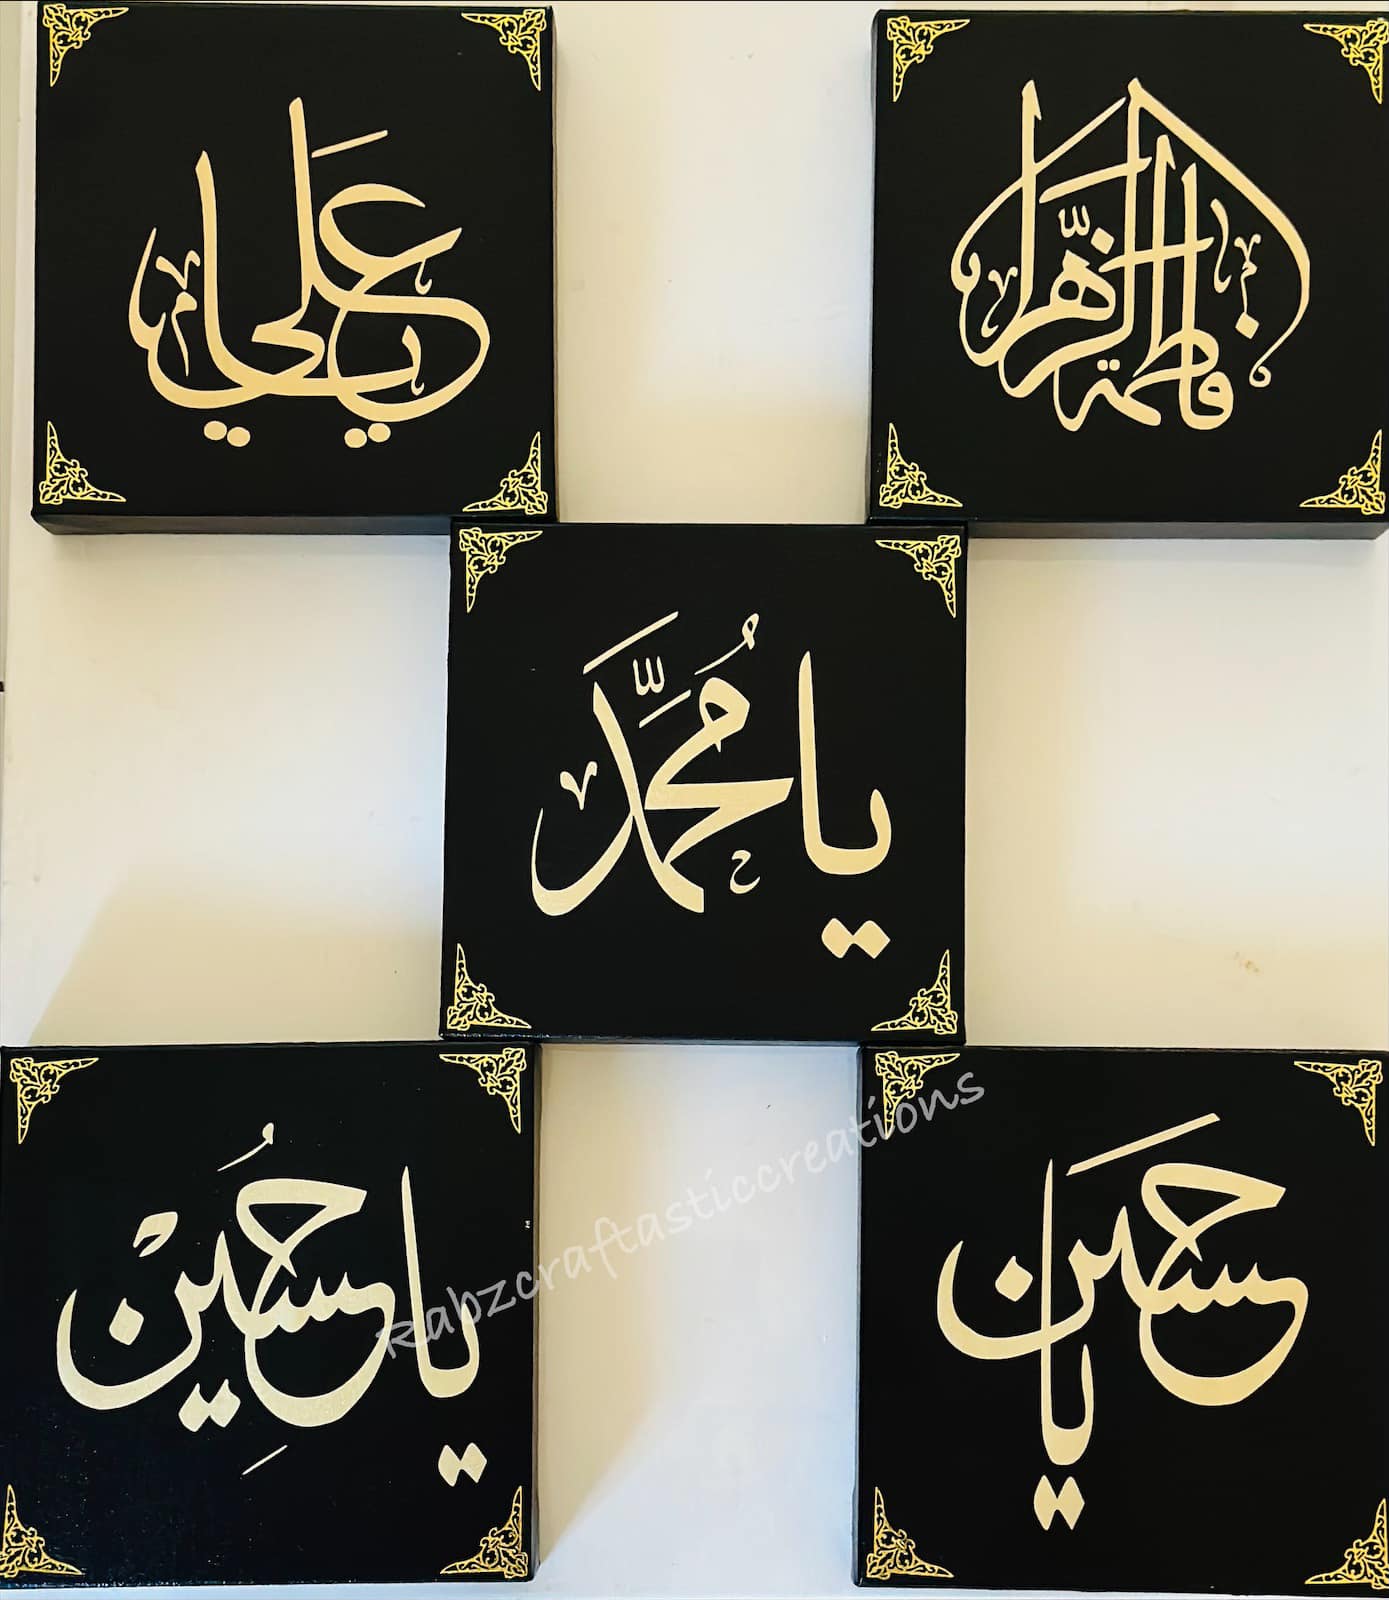 يا عَلي
فاطمة الزّهرا
يا مُحمَّد
يا حُسِيْن
يا حسَن
Rabzcraftasticcreations